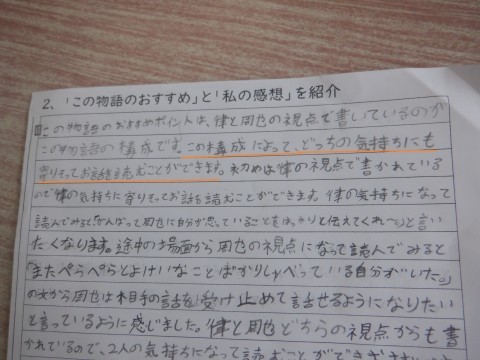 2、「この物語のおすすめ」と「私の感想」を紹介
この物語のおすすめポイントは、律と周也の視点で書いているのが
この物語の構成です。この構成によって、どっちの気持ちにも
寄りそってお話を読むことができます。初めは律の視点で書かれている
ので律の気持ちに寄りそってお話を読むことができます。律の気持ちになって
読んでみると「がんばって周也に自分が思っていることをはっきりと伝えてくれ〜」と言い
たくなります。途中の場面から周也の視点になって読んでみると
「またぺらぺらとよけいなことばかりしゃべっている自分がいた。」
の文から周也は相手の話を受け止めて話せるようになりたい
と言っているように感じました。律と周也どちらの視点からも書
かれているので、2人の気持ちになって読むことができ